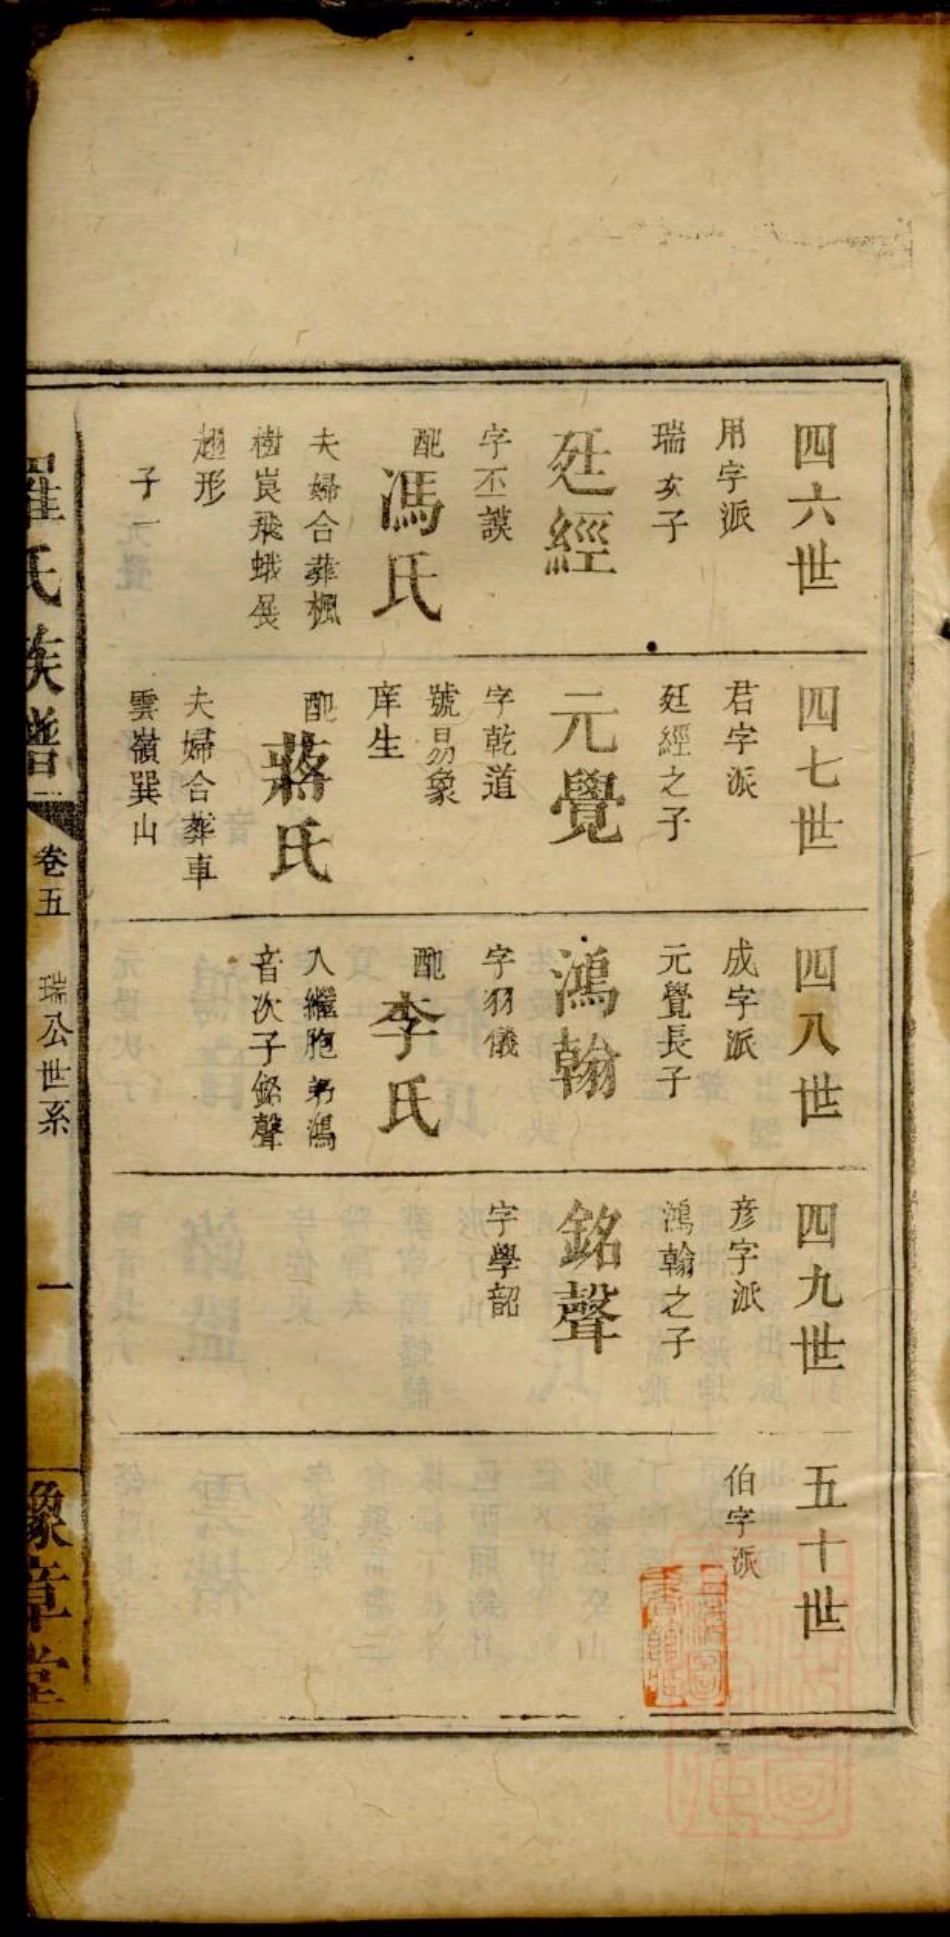 四六世
用字派
瑞公子
廷經
字丕謨
配馮氏
夫婦合葬楓
樹崀飛蛾展
翅形
子一元覺
四七世
君字派
廷經之子
元覺
字乾道
號易象
庠生
配蔣氏
夫婦合葬車
雲嶺巽山
四八世
成字派
元覺長子
鴻翰
字羽儀
配李氏
入繼胞弟鴻
音次子銘聲
四九世
彦字派
鴻翰之子
銘聲
字學韶
五十世
伯字派
羅氏族譜
卷五
瑞公世系
一
豫章堂